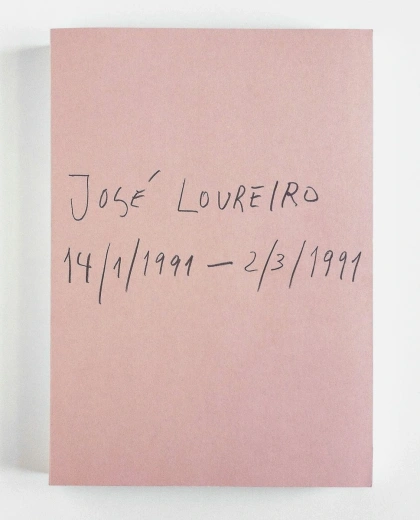 JOSÉ LOUREIRO
14/1/1991 — 2/3/1991